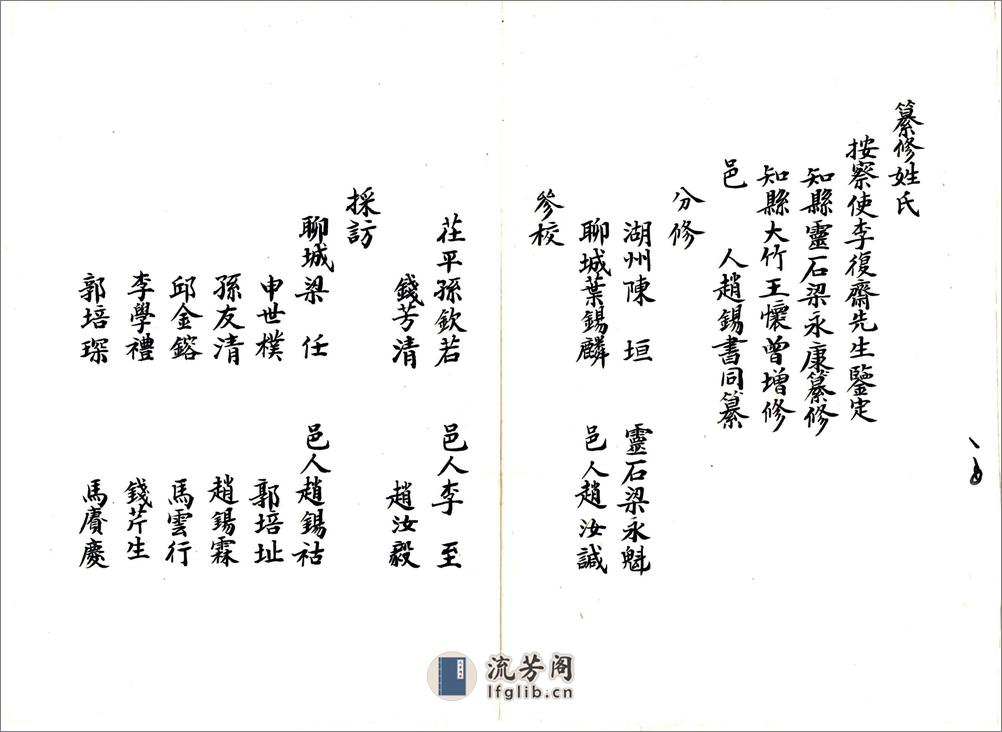 纂修姓氏
按察使李復齋先生鑒定
知縣靈石梁永康纂修
知縣大竹王懷曾增修
邑　人趙錫書同纂
分修
湖州陳　垣　靈石梁永魁
聊城葉錫麟　邑人趙汝誠
參校
茌平孫欽若　邑人李　至
錢芳清　趙汝毅
採訪
聊城梁　任　邑人趙錫祜
申世樸　郭培址
孫友清　趙錫霖
邱金鎔　馬雲行
李學禮　錢芹生
郭培琛　馬賡慶
流芳阁
lfglib.cn